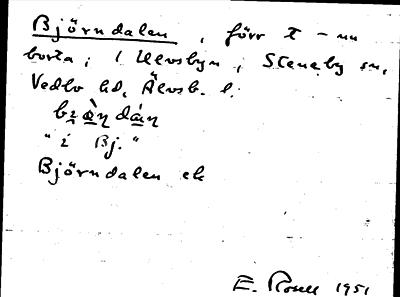 Björndalen, förr t – nu
borta; i Ulvsbyn; Steneby sn,
Vedbo hd, Älvsb. l.
"i Bj."
Björndalen ek
E. 1951